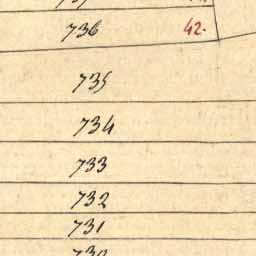 736 42.
735
734
733
732
731